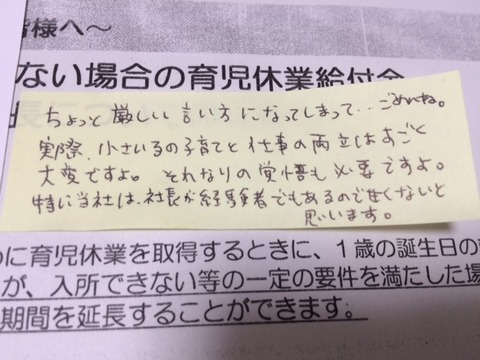 皆様へ~
ない場合の育児休業給付金
ちょっと厳しい言い方になってしまって…ごめんね。
実際、小さい子の子育てと仕事の両立はすごく
大変ですよ。それなりの覚悟も必要ですよ。
特に当社は、社長が経験者でもあるので甘くないと
思います。
に育児休業を取得するときに、1歳の誕生日の
が、入所できない等の一定の要件を満たした場
期間を延長することができます。